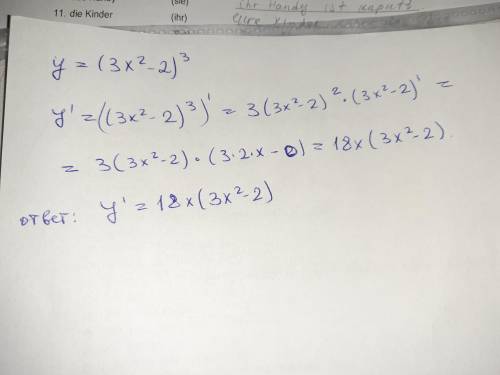 11. die Kinder (ihr)
(sie)
ihr Handy ist kaputt.
y = (3x²-2)³
y' = ((3x²-2)³)' = 3(3x²-2)²·(3x²-2)' =
= 3(3x²-2)·(3·2·x-0) = 18x(3x²-2).
ответ: y' = 18x(3x²-2)